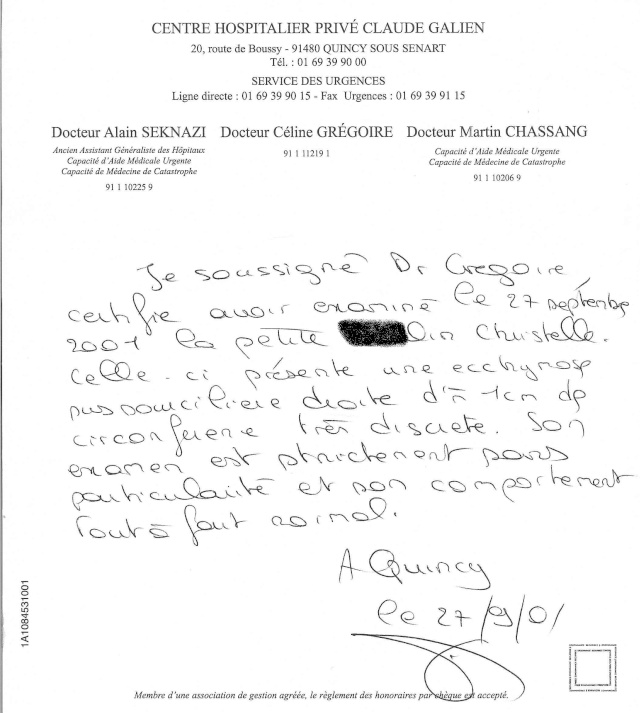 CENTRE HOSPITALIER PRIVÉ CLAUDE GALIEN
20, route de Boussy - 91480 QUINCY SOUS SENART
Tél. : 01 69 39 90 00
SERVICE DES URGENCES
Ligne directe : 01 69 39 90 15 - Fax Urgences : 01 69 39 91 15
Docteur Alain SEKNAZI
Ancien Assistant Généraliste des Hôpitaux
Capacité d'Aide Médicale Urgente
Capacité de Médecine de Catastrophe
91 1 10225 9
Docteur Céline GRÉGOIRE
91 1 11219 1
Docteur Martin CHASSANG
Capacité d'Aide Médicale Urgente
Capacité de Médecine de Catastrophe
91 1 10206 9
Je soussigné Dr Gregoire,
certifie avoir examiné le 27 septembre
2001 la petite lin Christelle.
Celle-ci présente une ecchymose
sus sourciliere droite d'n 1cm de
circonference très discrete. Son
examen est strictement sans
particularité et son comportement
tout à fait normal.
A Quincy
le 27/9/01
1A1084531001
Membre d'une association de gestion agréée, le règlement des honoraires par chèque est accepté.